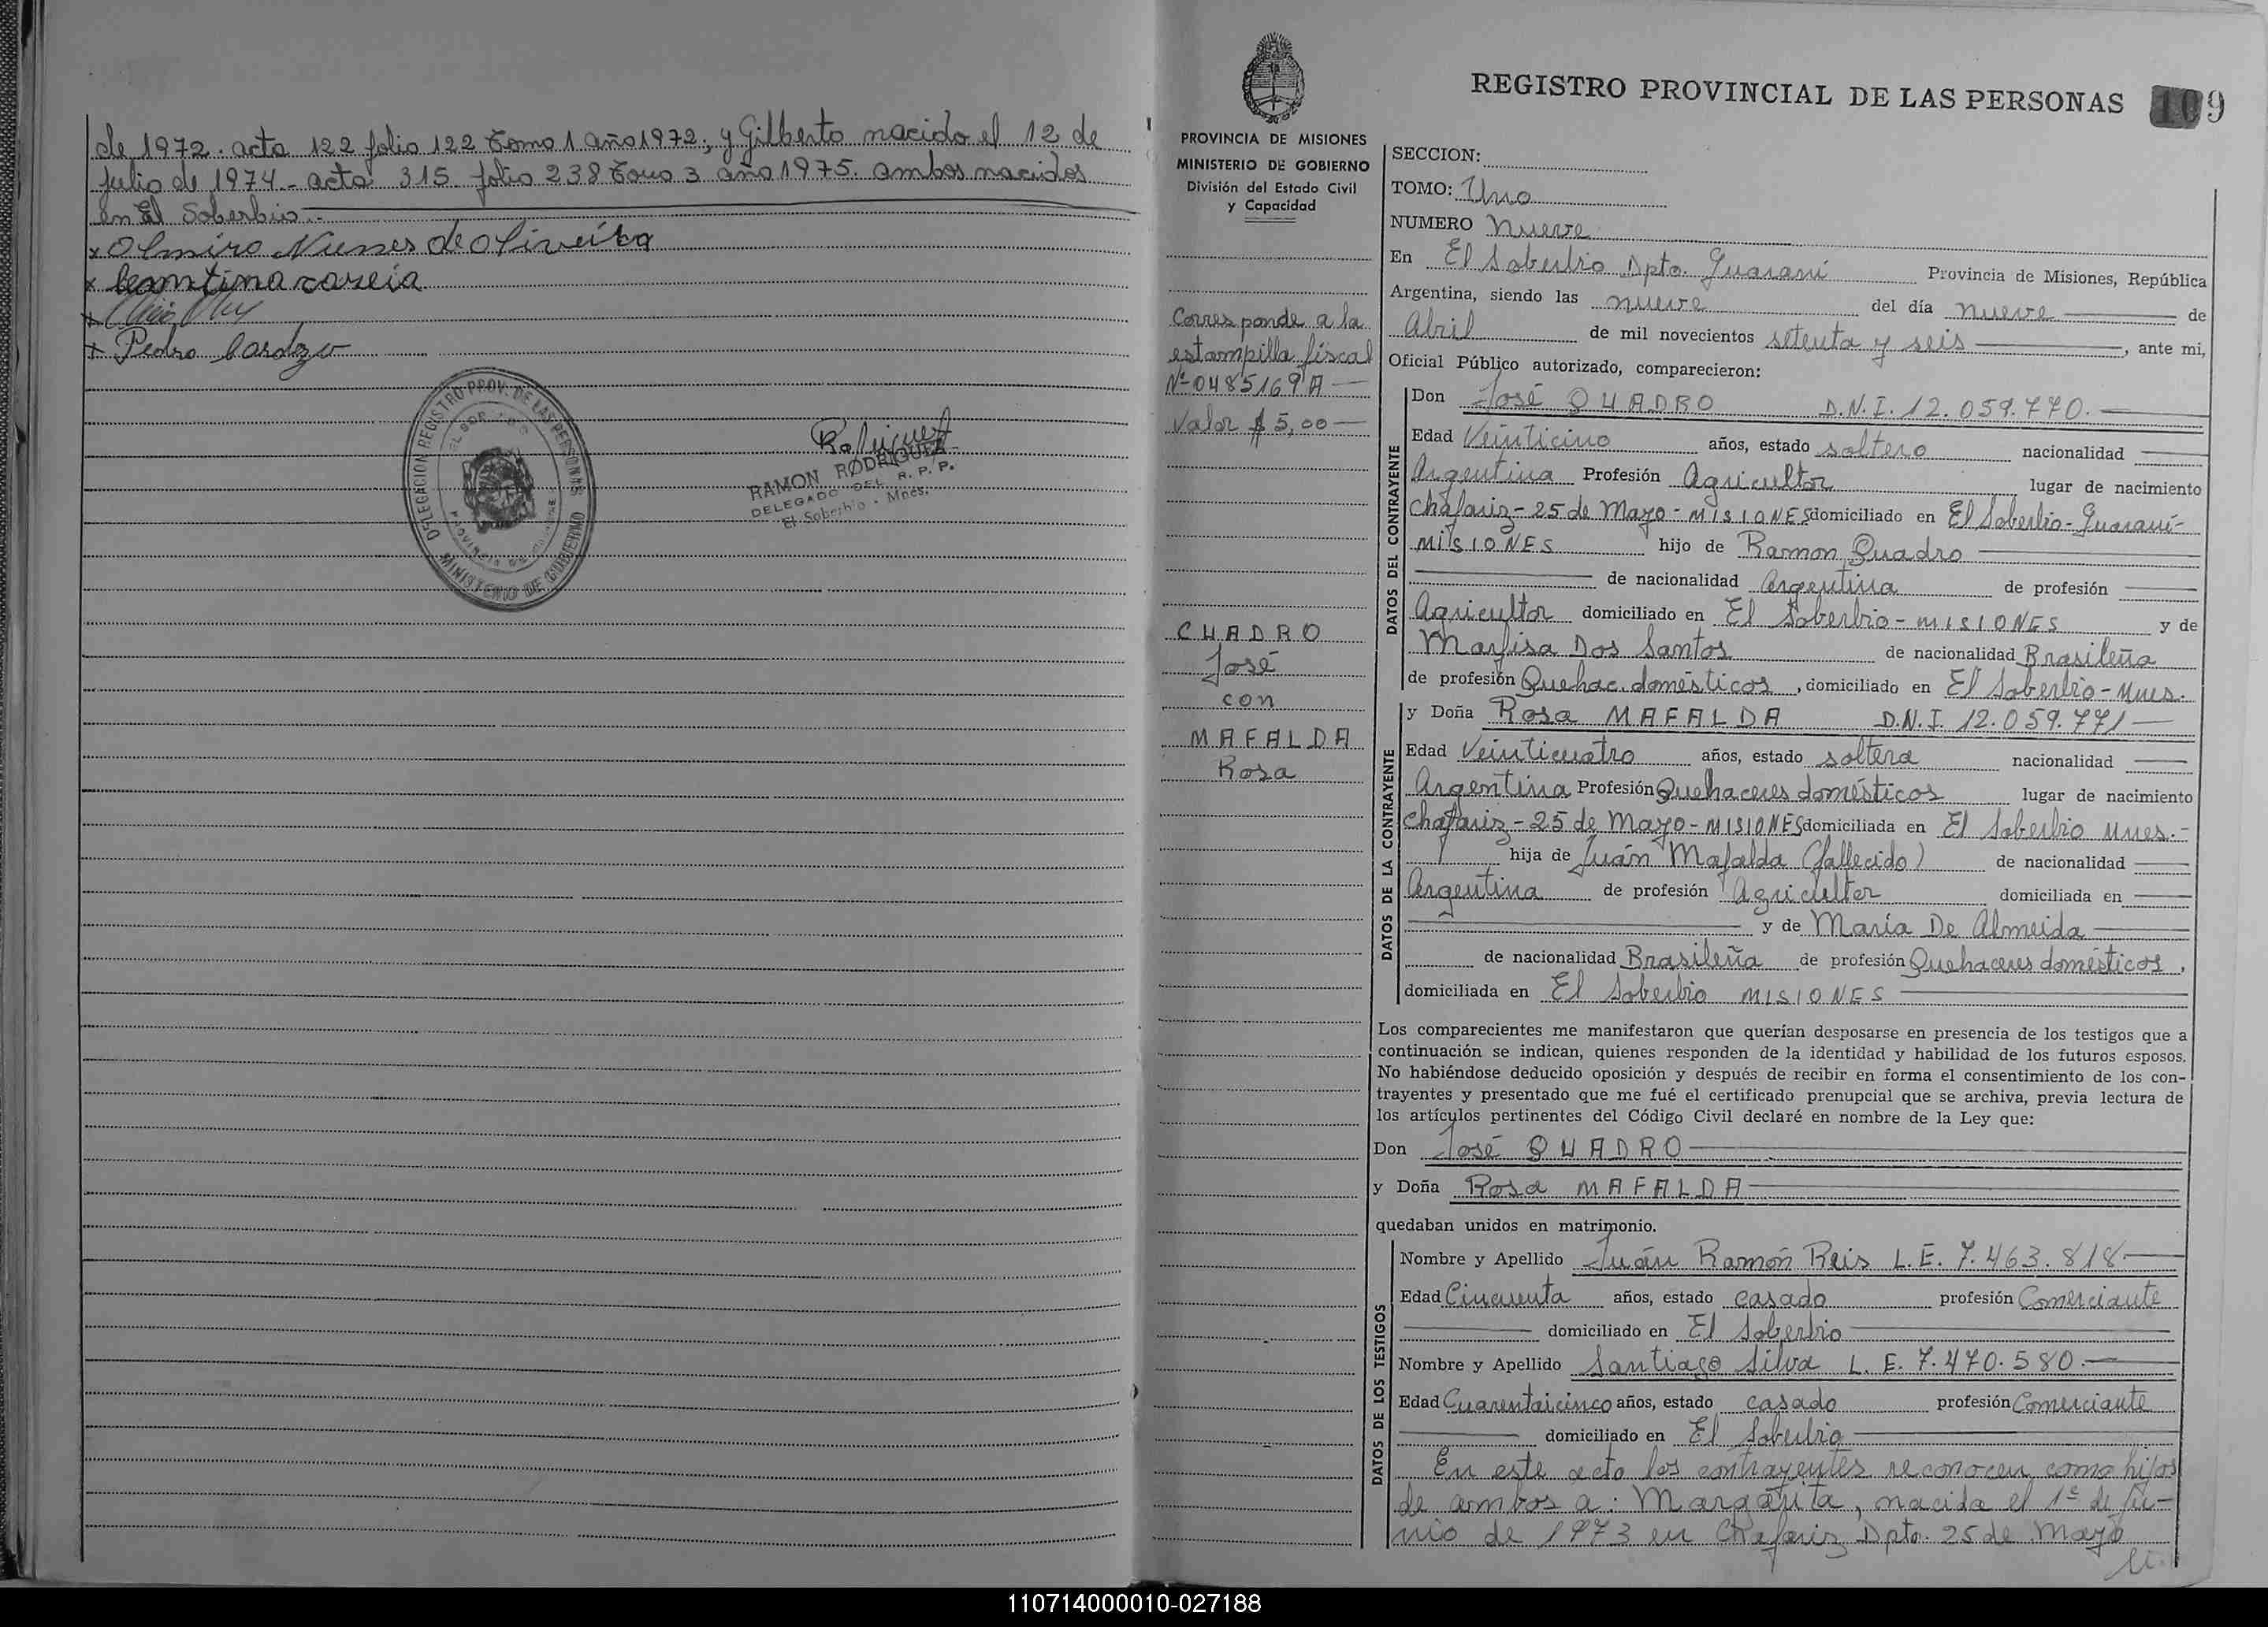 de 1972. acta 122 folio 122 tomo 1 año 1972; y Gilberto nacido el 12 de
Julio de 1974 - acta 315 folio 238 tomo 3 año 1975. ambos nacidos
en El Soberbio.-
x Olmiro Nunes de Oliveira
x
x
x Pedro Cardozo
DELEGACION REGISTRO PROV. DE LAS PERSONAS
MINISTERIO DE GOBIERNO
Rodriguez
RAMON RODRIGUEZ
DELEGADO DEL R. P. P.
El Soberbio - Mnes.
PROVINCIA DE MISIONES
MINISTERIO DE GOBIERNO
División del Estado Civil
y Capacidad
Corresponde a la
estampilla fiscal
Nº 0485169 A
Valor $ 5,00
CUADRO
José
con
MAFALDA
Rosa
REGISTRO PROVINCIAL DE LAS PERSONAS 109
SECCION:
TOMO: Uno
NUMERO Nueve
En El Soberbio Dpto. Guaraní Provincia de Misiones, República
Argentina, siendo las nueve del día nueve de
Abril de mil novecientos setenta y seis, ante mi,
Oficial Público autorizado, comparecieron:
DATOS DEL CONTRAYENTE
Don José QUADRO D.N.I. 12.059.770.
Edad Veinticino años, estado soltero nacionalidad
Argentina Profesión Agricultor lugar de nacimiento
Chafariz - 25 de Mayo - MISIONES domiciliado en El Soberbio - Guaraní -
MISIONES hijo de Ramon Quadro
de nacionalidad Argentina de profesión
Agricultor domiciliado en El Soberbio - MISIONES y de
Marfisa Dos Santos de nacionalidad Brasileña
de profesión Quehac. domésticos, domiciliado en El Soberbio - Mnes.
DATOS DE LA CONTRAYENTE
y Doña Rosa MAFALDA D.N.I. 12.059.771
Edad Veinticuatro años, estado soltera nacionalidad
Argentina Profesión Quehaceres domésticos lugar de nacimiento
Chafariz - 25 de Mayo - MISIONES domiciliada en El Soberbio Mnes.-
hija de Juán Mafalda (fallecido) de nacionalidad
Argentina de profesión Agricultor domiciliada en
y de María De Almeida
de nacionalidad Brasileña de profesión Quehaceres domésticos,
domiciliada en El Soberbio MISIONES
Los comparecientes me manifestaron que querían desposarse en presencia de los testigos que a
continuación se indican, quienes responden de la identidad y habilidad de los futuros esposos.
No habiéndose deducido oposición y después de recibir en forma el consentimiento de los con-
trayentes y presentado que me fué el certificado prenupcial que se archiva, previa lectura de
los artículos pertinentes del Código Civil declaré en nombre de la Ley que:
Don José QUADRO
y Doña Rosa MAFALDA
quedaban unidos en matrimonio.
DATOS DE LOS TESTIGOS
Nombre y Apellido Juán Ramón Reis L.E. 7.463.818
Edad Cincuenta años, estado casado profesión Comerciante
domiciliado en El Soberbio
Nombre y Apellido Santiago Silva L.E. 7.470.580.
Edad Cuarentaicinco años, estado casado profesión Comerciante
domiciliado en El Soberbio
En este acto los contrayentes reconocen como hijos
de ambos a: Margarita, nacida el 1º de Ju-
nio de 1973 en Chafariz Dpto. 25 de Mayo
110714000010-027188